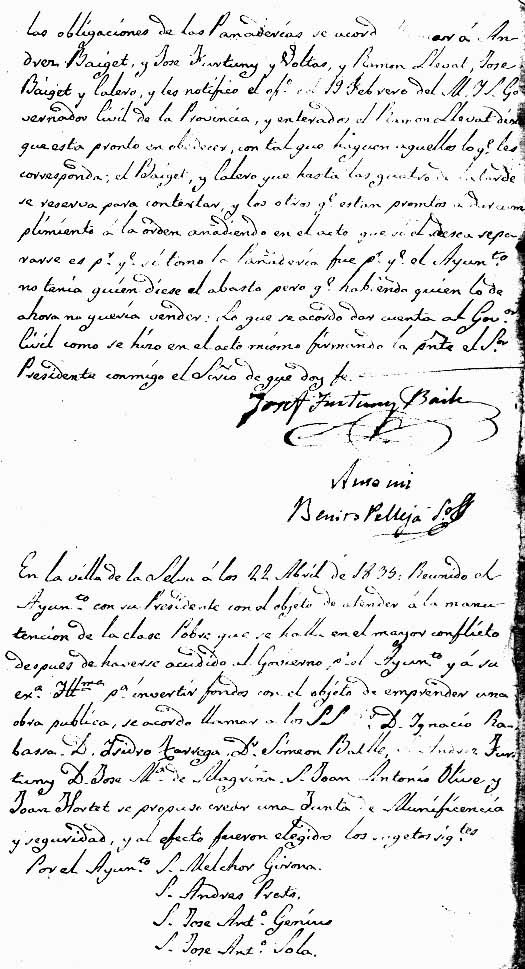 las obligaciones de las Panaderias se acord mar á An-
drez Baiget, y Jose Furtuny y Voltas, y Ramon Llevat, Jose
Baiget y Calero, y les notifico el ofº 19 Febrero del M. I. S. Go
vernador Civil de la Provincia, y enterados el Ramon Llevat dice
que esta pronto en obedecer, con tal que haguen aquellos lo qe les
corresponda; el Baiget, y Calero que hasta las quatro de la tarde
se reserva para contextar, y los otros qe estan promtos a dar cum
plimiento á la orden añadiendo en el acto que si el desea sepa
rarse es pr qe si tomo la Pañaderia fue pr qe el Ayunto
no tenia quien diese el abasto pero qe habiendo quien lo de
ahora no queria vender: Lo que se acordo dar cuenta al Govor
Civil como se hizo en el acto mismo firmando la pnte el Sor
Presidente conmigo el Scrio de que doy fe.
Josef Furtuny Baile
Ante mi
Benito Pellejá So
En la villa de la Selva á los 22 Abril de 1835: Reunido el
Ayunto con su Presidente con el objeto de atender á la manu
tencion de la clase Pobre que se halla en el mayor conflicto
despues de haverse acudido al Govierno pr el Ayunto y á su
exa Illma pa invertir fondos con el objeto de emprender una
obra publica, se acordo llamar a los SS D. Ignacio Ra-
bassa. D. Isidro Tarrega, Dr Simeon Batlle, Andrez Fur-
tuny D. Jose Ma de Magriña. S. Joan Antonio Olive y
Joan Fortet se propuso crear una Junta de Munificencia
y seguridad, y al efecto fueron elegidos los sugetos sigtes
Por el Ayunto S. Melchor Girona.
S. Andres Prets.
S. Jose Anto Genius
S. Jose Anto Sola.